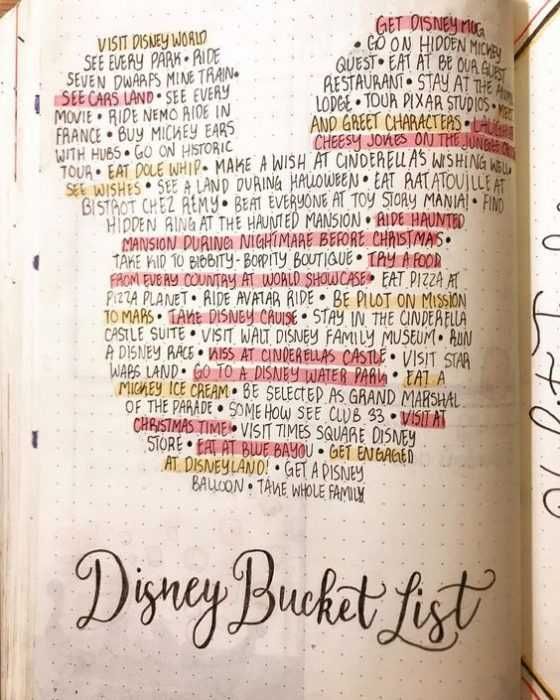 VISIT DISNEY WORLD
SEE EVERY PARK • RIDE
SEVEN DWARFS MINE TRAIN•
SEE CARS LAND • SEE EVERY
MOVIE • RIDE NEMO RIDE IN
FRANCE • BUY MICKEY EARS
WITH HUBS • GO ON HISTORIC
GET DISNEY MUG
• GO ON HIDDEN MICKEY
QUEST • EAT AT BE OUR GUEST
RESTAURANT • STAY AT THE
LODGE • TOUR PIXAR STUDIOS • MEET
AND GREET CHARACTERS •
CHEESY JOKES ON THE JUNGLE
TOUR • EAT DOLE WHIP • MAKE A WISH AT CINDERELLA'S WISHING WELL
SEE WISHES • SEE A LAND DURING HALLOWEEN • EAT RATATOUILLE AT
BISTROT CHEZ REMY • BEAT EVERYONE AT TOY STORY MANIA! • FIND
HIDDEN RING AT THE HAUNTED MANSION • RIDE HAUNTED
MANSION DURING NIGHTMARE BEFORE CHRISTMAS •
TAKE KID TO BIBBITY-BOPDITY BOUTIQUE • TRY A FOOD
FROM EVERY COUNTRY AT WORLD SHOWCASE • EAT PIZZA AT
PIZZA PLANET • RIDE AVATAR RIDE • BE PILOT ON MISSION
TO MARS • TAKE DISNEY CRUISE • STAY IN THE CINDERELLA
CASTLE SUITE • VISIT WALT DISNEY FAMILY MUSEUM • RUN
A DISNEY RACE • KISS AT CINDERELLAS CASTLE • VISIT STAR
WARS LAND • GO TO A DISNEY WATER PARK • EAT A
MICKEY ICE CREAM • BE SELECTED AS GRAND MARSHAL
OF THE PARADE • SOMEHOW SEE CLUB 33 • VISIT AT
CHRISTMAS TIME • VISIT TIMES SQUARE DISNEY
STORE • EAT AT BLUE BAYOU • GET ENGAGED
AT DISNEYLAND! • GET A DISNEY
BALLOON • TAKE WHOLE FAMILY
Disney Bucket List